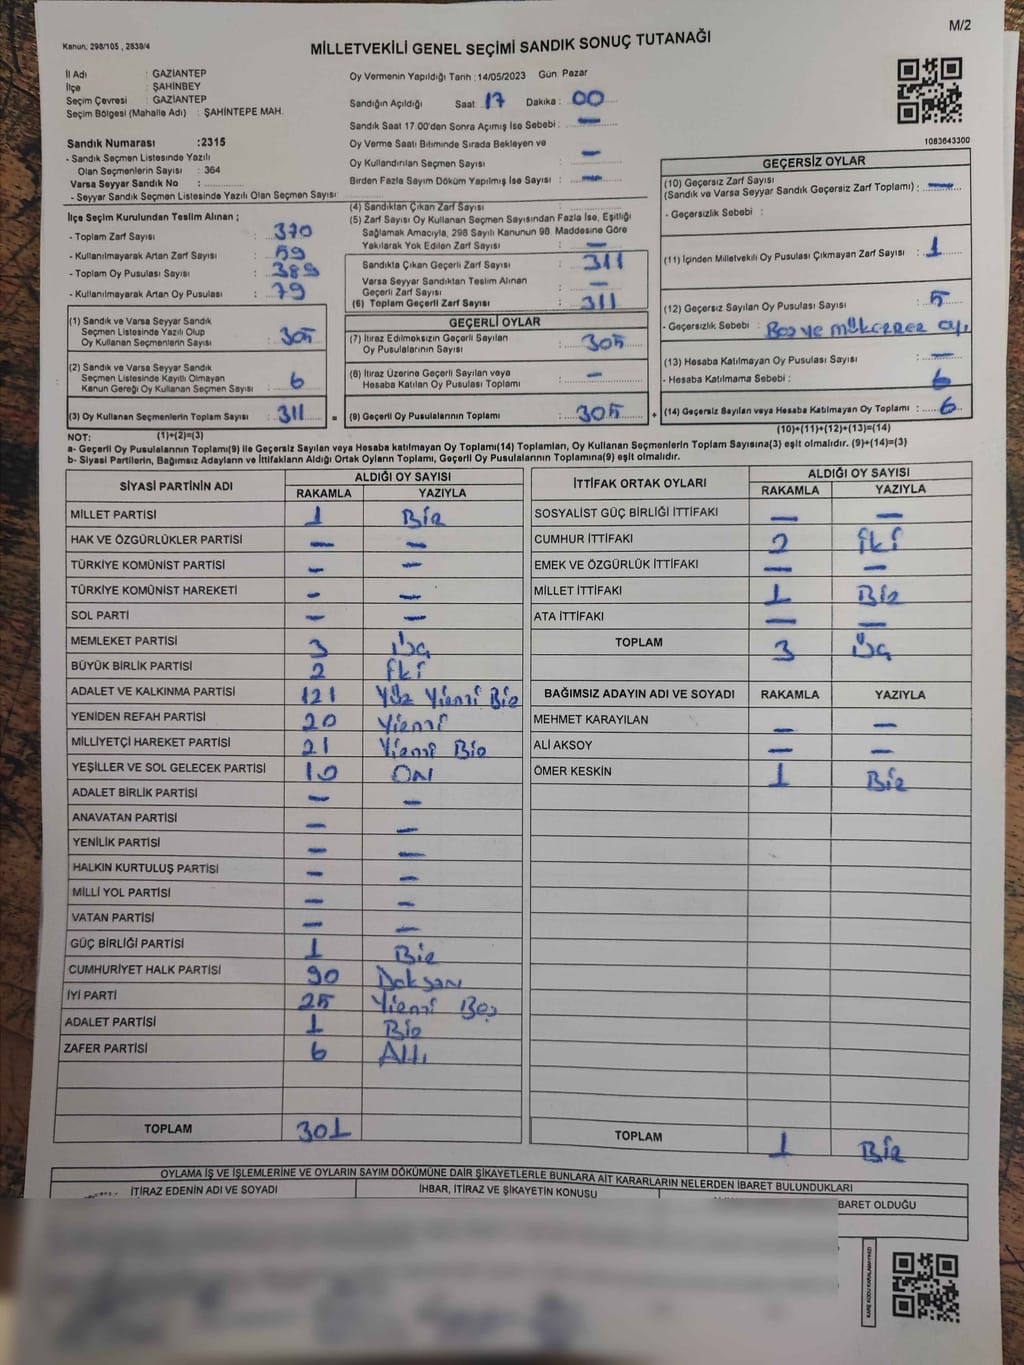 M/2
Kanun: 298/105 , 2839/4
MİLLETVEKİLİ GENEL SEÇİMİ SANDIK SONUÇ TUTANAĞI
İl Adı : GAZİANTEP
İlçe : ŞAHİNBEY
Seçim Çevresi : GAZİANTEP
Seçim Bölgesi (Mahalle Adı) : ŞAHİNTEPE MAH.
Sandık Numarası :2315
- Sandık Seçmen Listesinde Yazılı
Olan Seçmenlerin Sayısı : 364
Varsa Seyyar Sandık No :
- Seyyar Sandık Seçmen Listesinde Yazılı Olan Seçmen Sayısı:
Oy Vermenin Yapıldığı Tarih :14/05/2023 Gün: Pazar
Sandığın Açıldığı Saat: 17 Dakika : 00
Sandık Saat 17.00'den Sonra Açımış İse Sebebi : —
Oy Verme Saati Bitiminde Sırada Bekleyen ve
Oy Kullandırılan Seçmen Sayısı —
Birden Fazla Sayım Döküm Yapılmış İse Sayısı : —
1083643300
İlçe Seçim Kurulundan Teslim Alınan ;
- Toplam Zarf Sayısı : 370
- Kullanılmayarak Artan Zarf Sayısı : 59
- Toplam Oy Pusulası Sayısı : 389
- Kullanılmayarak Artan Oy Pusulası : 79
(1) Sandık ve Varsa Seyyar Sandık
Seçmen Listesinde Yazılı Olup
Oy Kullanan Seçmenlerin Sayısı : 305
(2) Sandık ve Varsa Seyyar Sandık
Seçmen Listesinde Kayıtlı Olmayan
Kanun Gereği Oy Kullanan Seçmen Sayısı : 6
(3) Oy Kullanan Seçmenlerin Toplam Sayısı : 311 =
(4) Sandıktan Çıkan Zarf Sayısı :
(5) Zarf Sayısı Oy Kullanan Seçmen Sayısından Fazla İse, Eşitliği
Sağlamak Amacıyla, 298 Sayılı Kanunun 98. Maddesine Göre
Yakılarak Yok Edilen Zarf Sayısı : —
Sandıkta Çıkan Geçerli Zarf Sayısı : 311
Varsa Seyyar Sandıktan Teslim Alınan
Geçerli Zarf Sayısı : —
(6) Toplam Geçerli Zarf Sayısı : 311
GEÇERLİ OYLAR
(7) İtiraz Edilmeksizin Geçerli Sayılan
Oy Pusulalarının Sayısı : 305
(8) İtiraz Üzerine Geçerli Sayılan veya
Hesaba Katılan Oy Pusulası Toplamı : —
(9) Geçerli Oy Pusulalarının Toplamı : 305 +
GEÇERSİZ OYLAR
(10) Geçersiz Zarf Sayısı
(Sandık ve Varsa Seyyar Sandık Geçersiz Zarf Toplamı) : —
- Geçersizlik Sebebi :
(11) İçinden Milletvekili Oy Pusulası Çıkmayan Zarf Sayısı : 1
(12) Geçersiz Sayılan Oy Pusulası Sayısı : 5
- Geçersizlik Sebebi : Boş ve mükerrer oy
(13) Hesaba Katılmayan Oy Pusulası Sayısı : —
- Hesaba Katılmama Sebebi : 6
(14) Geçersiz Sayılan veya Hesaba Katılmayan Oy Toplamı : 6
(10)+(11)+(12)+(13)=(14)
NOT: (1)+(2)=(3)
a- Geçerli Oy Pusulalarının Toplamı(9) ile Geçersiz Sayılan veya Hesaba katılmayan Oy Toplamı(14) Toplamları, Oy Kullanan Seçmenlerin Toplam Sayısına(3) eşit olmalıdır. (9)+(14)=(3)
b- Siyasi Partilerin, Bağımsız Adayların ve İttifakların Aldığı Ortak Oyların Toplamı, Geçerli Oy Pusulalarının Toplamına(9) eşit olmalıdır.
SİYASİ PARTİNİN ADI ALDIĞI OY SAYISI
RAKAMLA YAZIYLA
MİLLET PARTİSİ 1 Bir
HAK VE ÖZGÜRLÜKLER PARTİSİ — —
TÜRKİYE KOMÜNİST PARTİSİ — —
TÜRKİYE KOMÜNİST HAREKETİ — —
SOL PARTİ — —
MEMLEKET PARTİSİ 3 Üç
BÜYÜK BİRLİK PARTİSİ 2 İki
ADALET VE KALKINMA PARTİSİ 121 Yüz Yirmi Bir
YENİDEN REFAH PARTİSİ 20 Yirmi
MİLLİYETÇİ HAREKET PARTİSİ 21 Yirmi Bir
YEŞİLLER VE SOL GELECEK PARTİSİ 10 ON
ADALET BİRLİK PARTİSİ — —
ANAVATAN PARTİSİ — —
YENİLİK PARTİSİ — —
HALKIN KURTULUŞ PARTİSİ — —
MİLLİ YOL PARTİSİ — —
VATAN PARTİSİ — —
GÜÇ BİRLİĞİ PARTİSİ 1 Bir
CUMHURİYET HALK PARTİSİ 90 Doksan
İYİ PARTİ 25 Yirmi Beş
ADALET PARTİSİ 1 Bir
ZAFER PARTİSİ 6 Altı
TOPLAM 301
İTTİFAK ORTAK OYLARI ALDIĞI OY SAYISI
RAKAMLA YAZIYLA
SOSYALİST GÜÇ BİRLİĞİ İTTİFAKI — —
CUMHUR İTTİFAKI 2 İki
EMEK VE ÖZGÜRLÜK İTTİFAKI — —
MİLLET İTTİFAKI 1 Bir
ATA İTTİFAKI — —
TOPLAM 3 Üç
BAĞIMSIZ ADAYIN ADI VE SOYADI RAKAMLA YAZIYLA
MEHMET KARAYILAN — —
ALİ AKSOY — —
ÖMER KESKİN 1 Bir
TOPLAM 1 Bir
OYLAMA İŞ VE İŞLEMLERİNE VE OYLARIN SAYIM DÖKÜMÜNE DAİR ŞİKAYETLERLE BUNLARA AİT KARARLARIN NELERDEN İBARET BULUNDUKLARI
İTİRAZ EDENİN ADI VE SOYADI İHBAR, İTİRAZ VE ŞİKAYETİN KONUSU
BARET OLDUĞU
KARE KODU KARALAMAYINIZ!